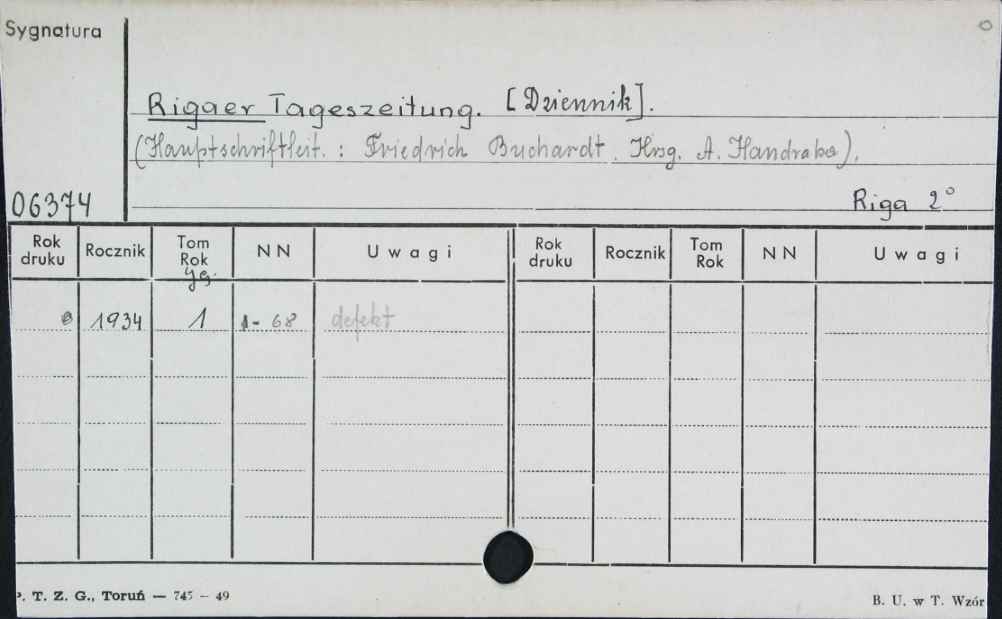 Sygnatura
Rigaer Tageszeitung. [Dziennik].
(Hauptschriftleit. : Friedrich Buchardt. Hrsg. A. Handrabe).
06374
Riga 2°
Rok druku Rocznik Tom Rok Jg. NN Uwagi Rok druku Rocznik Tom Rok NN Uwagi
1934 1 1-68 defekt
P. T. Z. G., Toruń — 745 — 49
B. U. w T. Wzór